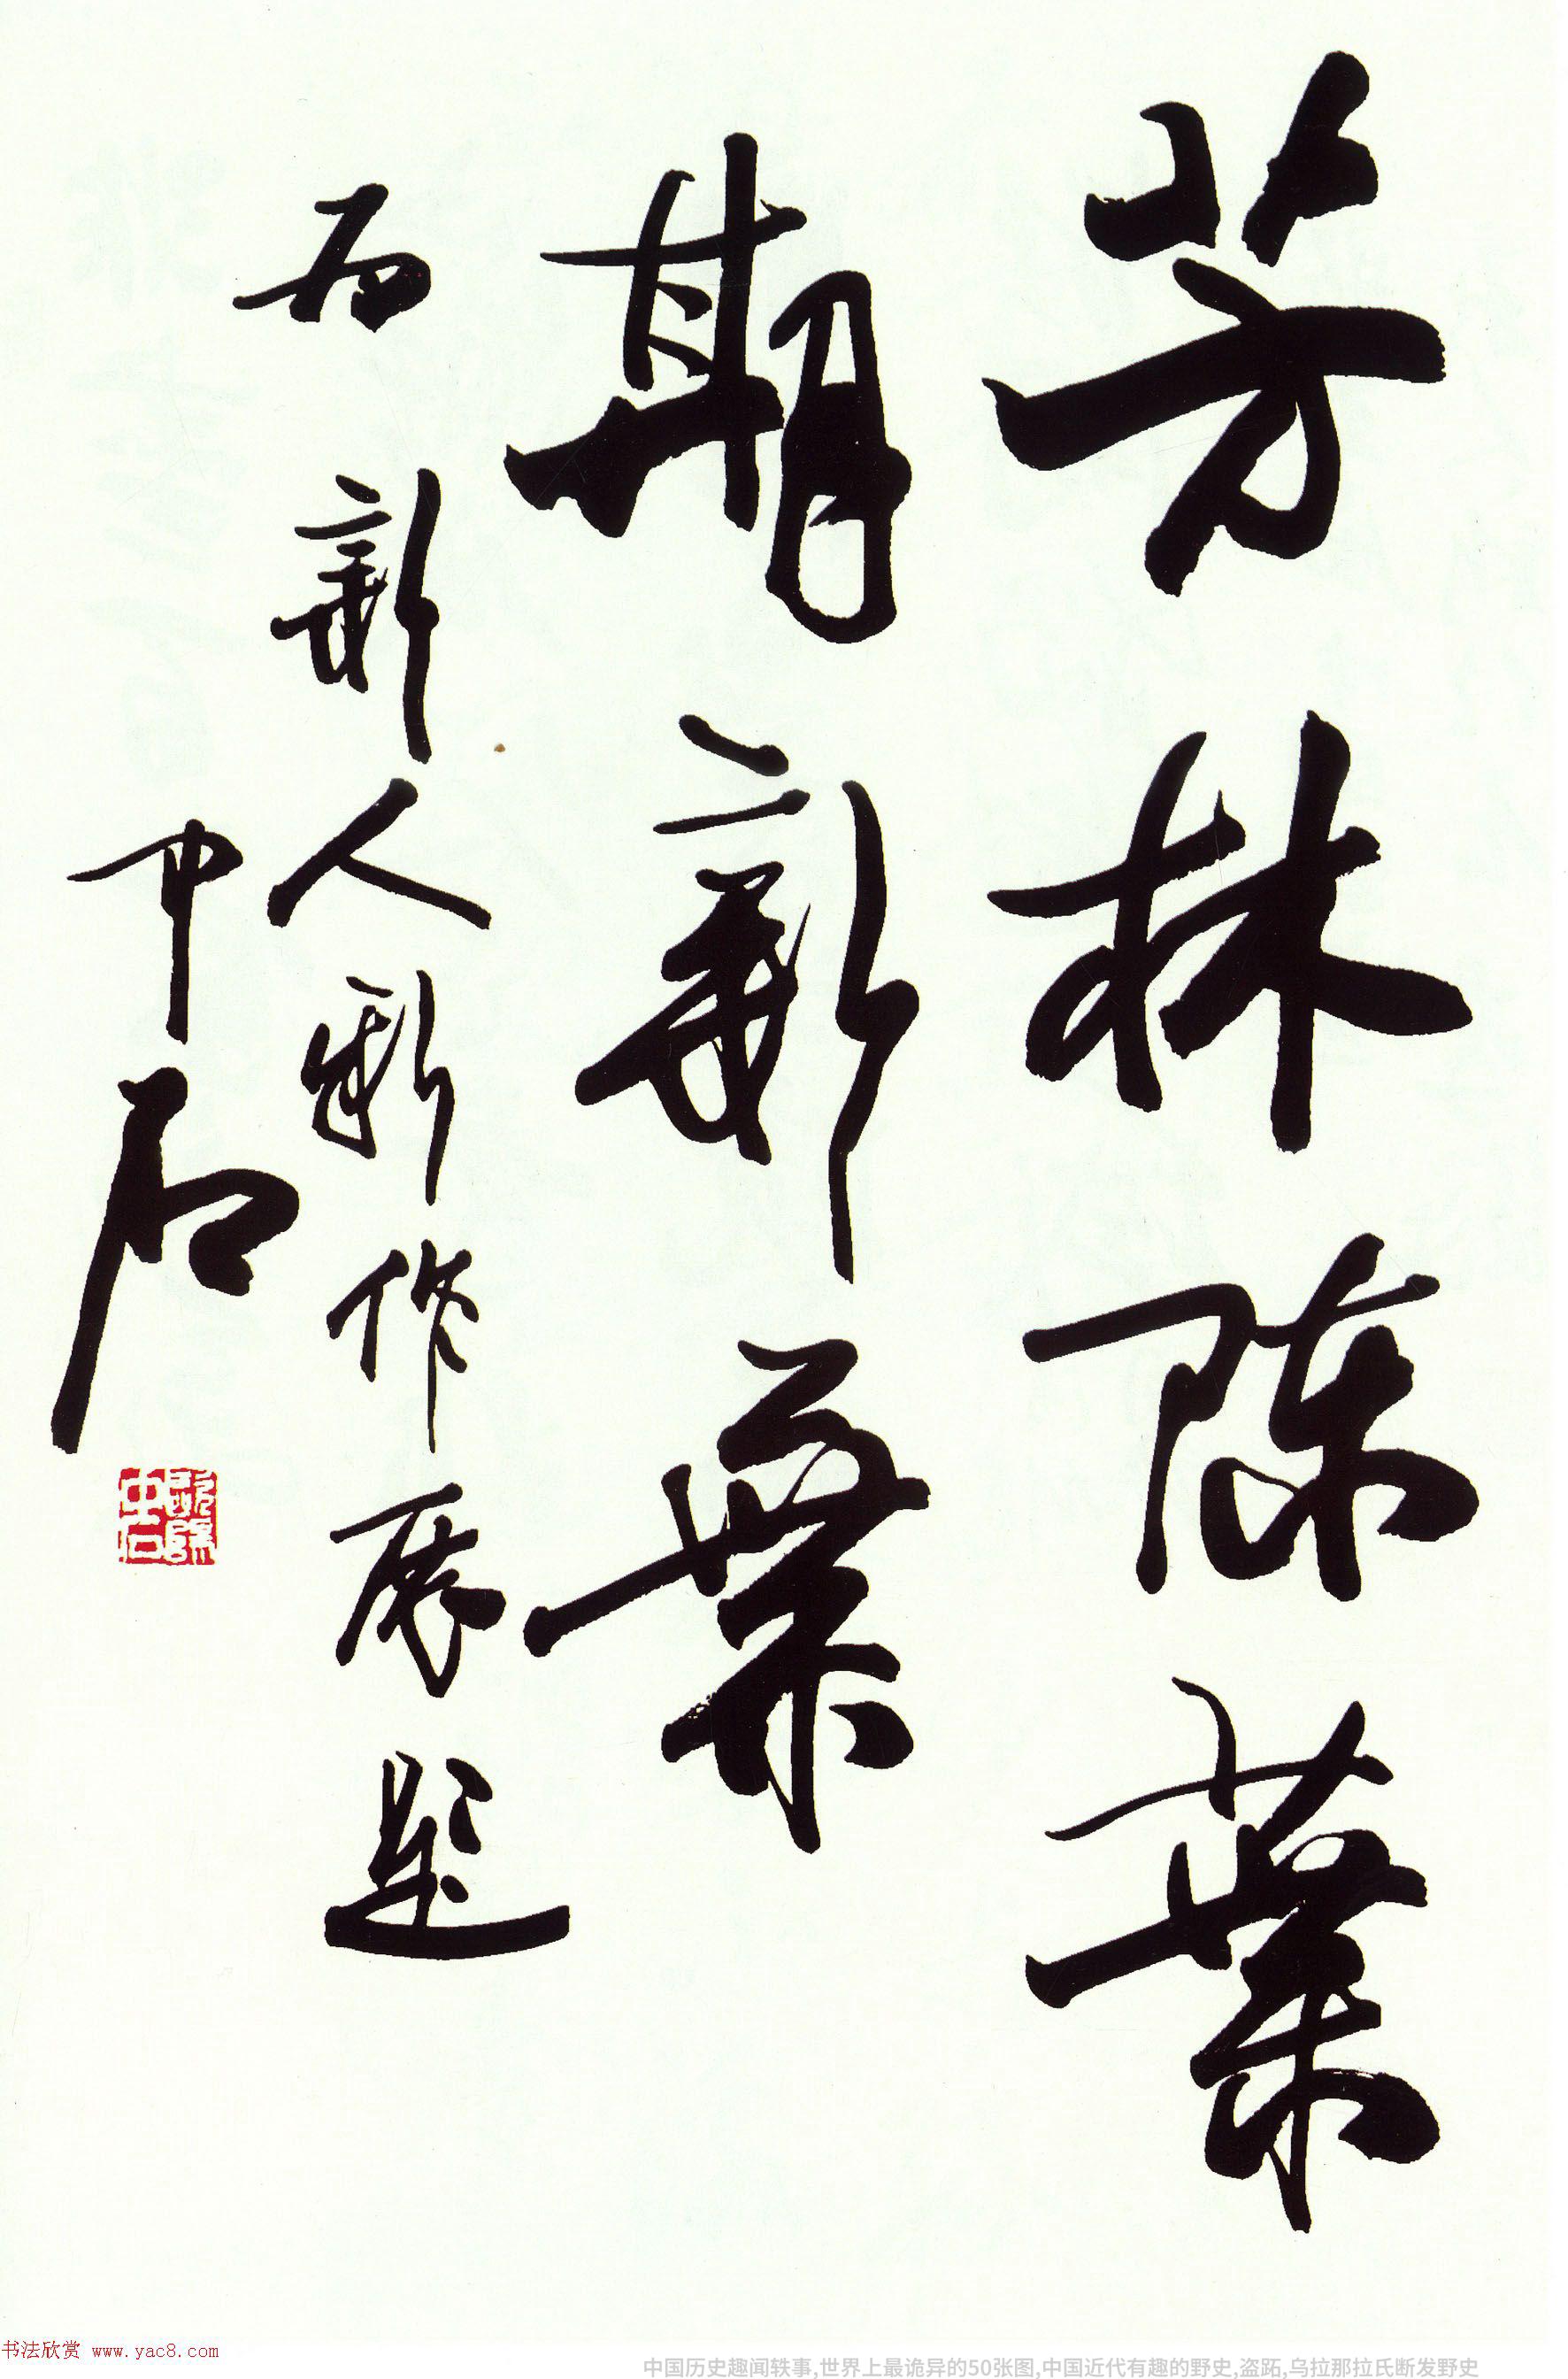 芳林陳葉
期新葉
為新人新作展題
中石
歐陽中石
书法欣赏 www.yac8.com
中国历史趣闻轶事,世界上最诡异的50张图,中国近代有趣的野史,盗跖,乌拉那拉氏断发野史